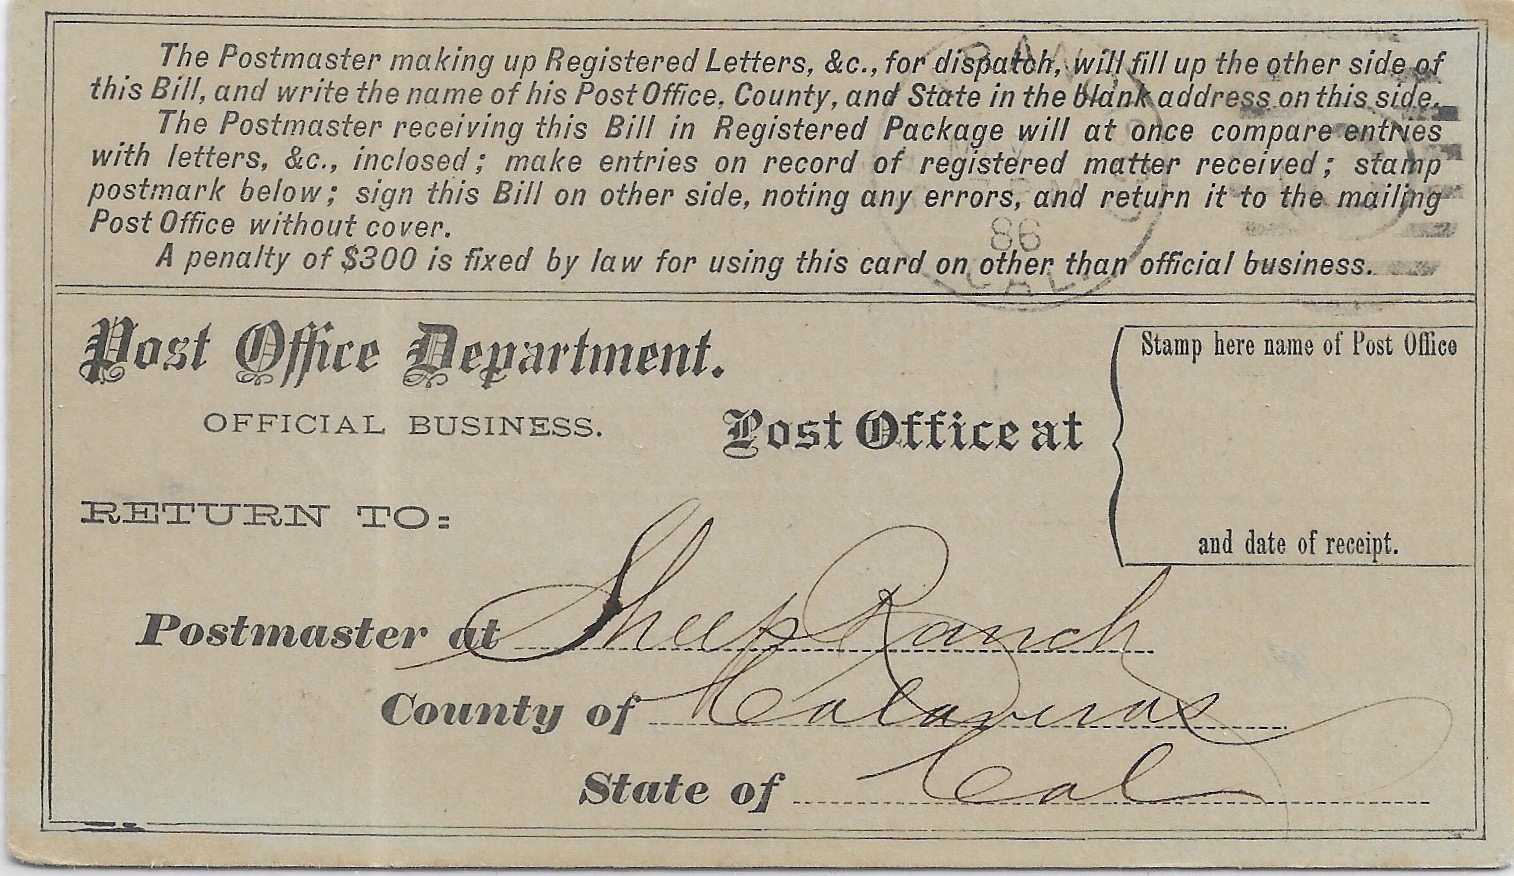 The Postmaster making up Registered Letters, &c., for dispatch, will fill up the other side of
this Bill, and write the name of his Post Office, County, and State in the blank address on this side.
The Postmaster receiving this Bill in Registered Package will at once compare entries
with letters, &c., inclosed; make entries on record of registered matter received; stamp
postmark below; sign this Bill on other side, noting any errors, and return it to the mailing
Post Office without cover.
A penalty of $300 is fixed by law for using this card on other than official business.
86
CAL
Post Office Department.
OFFICIAL BUSINESS.
Post Office at
Stamp here name of Post Office
and date of receipt.
RETURN TO:
Postmaster at Sheep Ranch
County of Calaveras
State of Cal